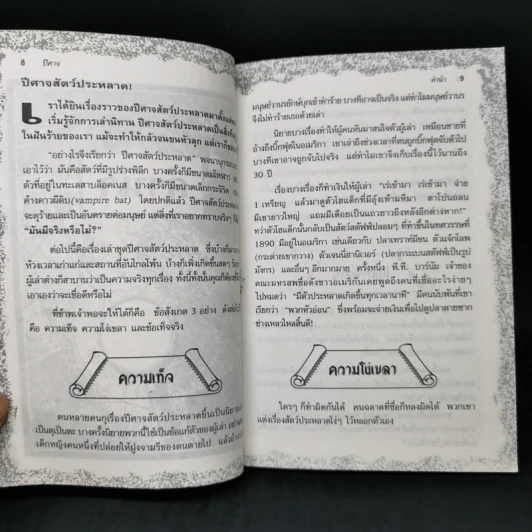 8 ปีศาจ
ปีศาจสัตว์ประหลาด!
เราได้ยินเรื่องราวของปีศาจสัตว์ประหลาดมาตั้งแต่
เริ่มรู้จักการเล่านิทาน ปีศาจสัตว์ประหลาดเป็นสิ่งที่อยู่
ในฝันร้ายของเรา แม้จะทำให้กลัวจนขนหัวลุก แต่เราก็
"อย่างไรจึงเรียกว่า ปีศาจสัตว์ประหลาด" พจนานุกรม
เอาไว้ว่า มันคือสัตว์ที่มีรูปร่างพิลึก บางครั้งก็มีขนาดมโหฬาร
ตัวที่อยู่ในทะเลสาบล็อคเนส บางครั้งก็มีขนาดเล็กกระจิริด
ค้างคาวผีดิบ(vampire bat) โดยปกติแล้ว ปีศาจสัตว์ประหลาด
จะดุร้ายและเป็นอันตรายต่อมนุษย์ แต่สิ่งที่เราอยากทราบจริงๆ
"มันมีจริงหรือไม่?"
ต่อไปนี้คือเรื่องเล่าชุดปีศาจสัตว์ประหลาด ซึ่งบ้างก็มา
ห้วงเวลาเก่าแก่และสถานที่อันไกลโพ้น บ้างก็เพิ่งเกิดขึ้นสดๆ
ผู้เล่าต่างก็สาบานว่าเป็นความจริงทุกเรื่อง ทั้งนี้ทั้งนั้นคุณก็ต้อง
เอาเองว่าจะเชื่อดีหรือไม่
ที่ข้าพเจ้าพอจะให้ได้ก็คือ ข้อสังเกต 3 อย่าง ดังต่อไปนี้
คือ ความเท็จ ความโง่เขลา และข้อเท็จจริง
ความเท็จ
คนหลายคนกุเรื่องปีศาจสัตว์ประหลาดขึ้นเป็นนิยาย
เป็นตุเป็นตะ บางครั้งนิยายพวกนี้ใช้เป็นข้อแก้ตัวของผู้เล่า อย่าง
เด็กหญิงคนหนึ่งที่ปล่อยให้ฝูงจามรีของตนตายไป แล้ว
คำนำ 9
มนุษย์วานรยักษ์บุกเข้าทำร้าย บางทีอาจเป็นจริง แต่ทำไมมนุษย์วานร
จึงไม่ทำร้ายเธอด้วยเล่า
นิยายบางเรื่องทำให้ผู้คนหันมาสนใจตัวผู้เล่า เหมือนชายที่
อ้างถึงบิ๊กฟุตในอเมริกา เขาเล่าถึงช่วงเวลาที่ตนถูกบิ๊กฟุตจับตัวไป
บางทีเขาอาจถูกจับไปจริง แต่ทำไมเขาจึงเก็บเรื่องนี้ไว้นานถึง
30 ปี
เรื่องบางเรื่องก็ทำเงินให้ผู้เล่า "เร่เข้ามา เร่เข้ามา จ่าย
1 เหรียญ แล้วมาดูตัวโฮแด็กที่มีอุ้งเท้ามหึมา ตาโปนถลน
มีเขายาวใหญ่ แถมมีเดือยเป็นแถวยาวถึงหลังอีกต่างหาก!"
ทว่าตัวโฮแด็กนั้นกลับเป็นสัตว์สตัฟฟ์ปลอมๆ ที่ทำขึ้นในทศวรรษที่
1890 มีอยู่ในอเมริกา เช่นเดียวกับ ปลาเทราท์มีขน ตัวแจ็กโลพ
(กระต่ายเขากวาง) ตัวเจนนี่ฮานิเวอร์ (ปลากระเบนสตัฟฟ์เป็นรูป
มังกร) และอื่นๆ อีกมากมาย ครั้งหนึ่ง พี.ที. บาร์นัม เจ้าของ
คณะมหรสพชื่อดังชาวอเมริกันเคยพูดถึงคนที่เชื่ออะไรง่ายๆ
ไปหมดว่า "มีตัวประหลาดเกิดขึ้นทุกเวลานาที" มีคนนับพันที่เขา
เรียกว่า "พวกหัวอ่อน" ซึ่งพร้อมจะจ่ายเงินเพื่อไปดูปลาตายซาก
ช่างเหลวไหลสิ้นดี!
ความโง่เขลา
ใครๆ ก็ทำผิดกันได้ คนฉลาดที่ชื่อก็หลงผิดได้ พวกเขา
แต่งเรื่องสัตว์ประหลาดโง่ๆ ไว้หลอกตัวเอง